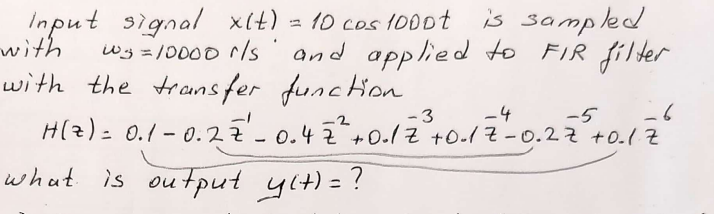 Input signal x(t) = 10 cos 1000t is sampled
with ws = 10000 r/s and applied to FIR filter
with the transfer function
H(z) = 0.1 - 0.2 z^-1 - 0.4 z^-2 + 0.1 z^-3 + 0.1 z^-4 - 0.2 z^-5 + 0.1 z^-6
what is output y(t) = ?